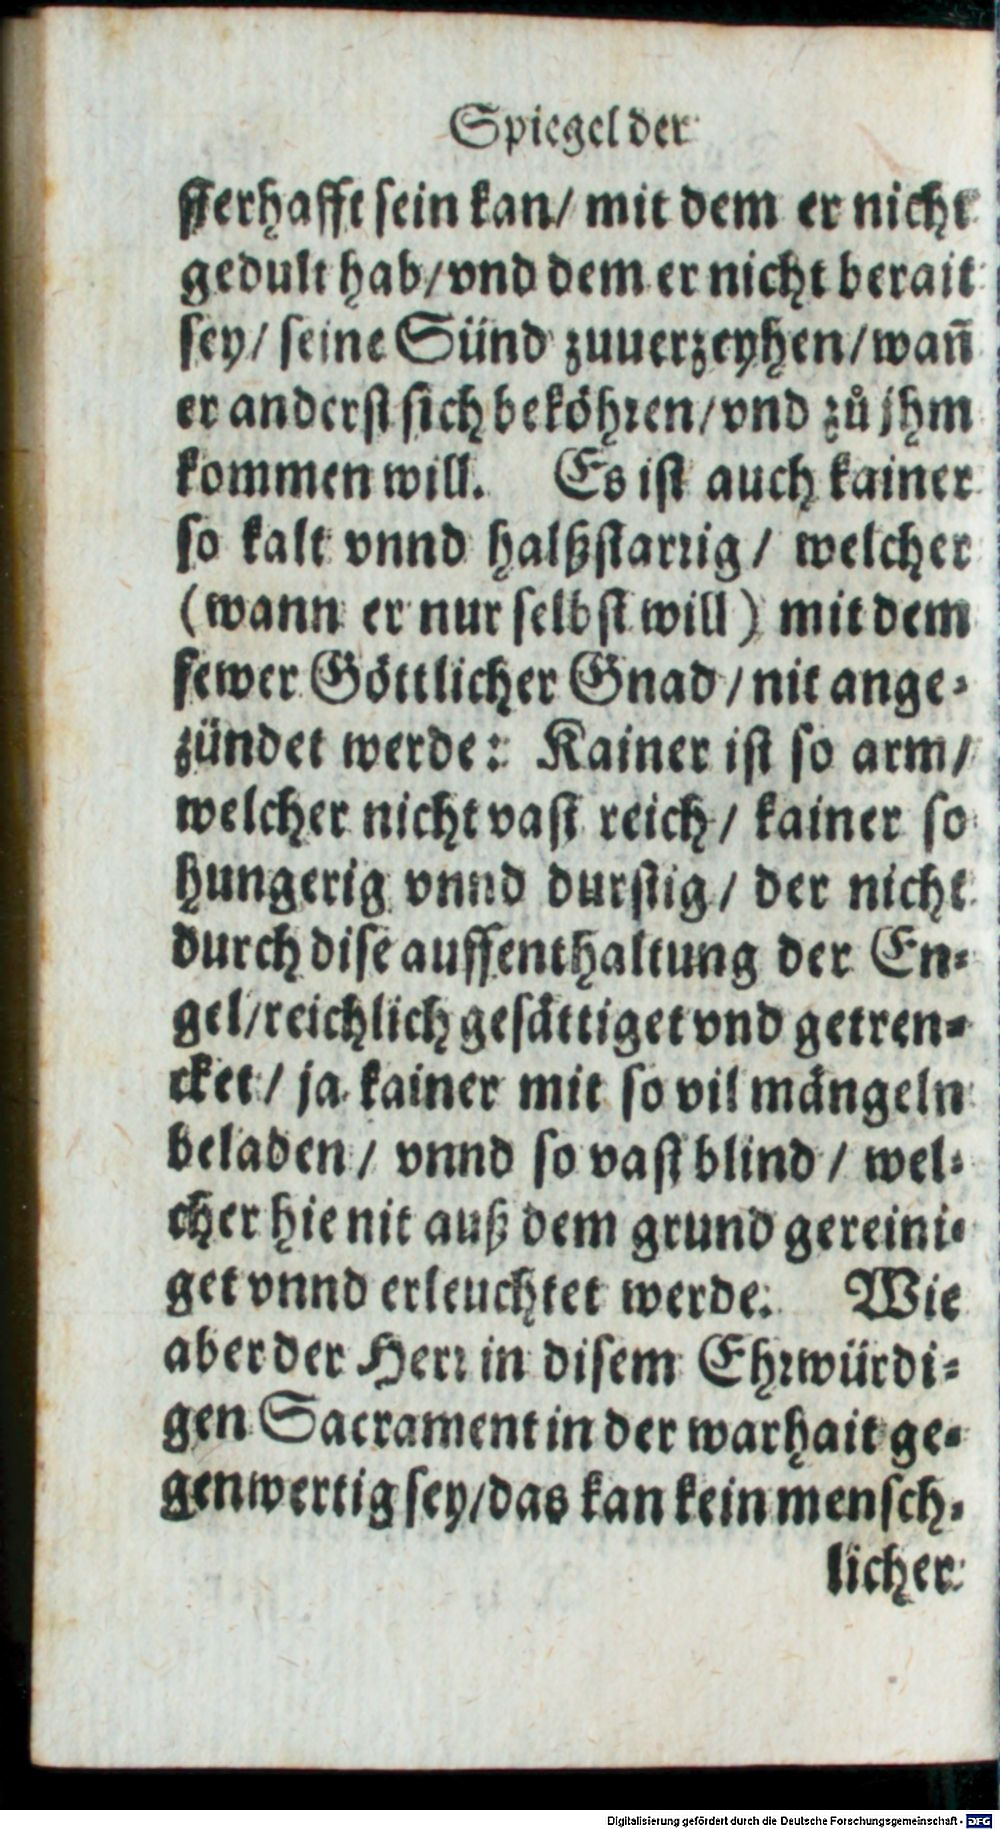 Spiegel der
sterhafft sein kan/ mit dem er nicht
gedult hab/vnd dem er nicht berait
sey/ seine Sünd zuuerzeyhen/wañ
er anderst sich beköhren/vnd zů jhm
kommen will. Es ist auch kainer
so kalt vnnd halßstarrig/ welcher
(wann er nur selbst will) mit dem
fewer Göttlicher Gnad/nit ange-
zündet werde: Kainer ist so arm/
welcher nicht vast reich/ kainer so
hungerig vnnd durstig/ der nicht
durch dise auffenthaltung der En-
gel/reichlich gesättiget vnd getren-
cket/ ja kainer mit so vil mängeln
beladen/ vnnd so vast blind/ wel-
cher hie nit auß dem grund gereini-
get vnnd erleuchtet werde. Wie
aber der Herr in disem Ehrwürdi-
gen Sacrament in der warhait ge-
genwertig sey/das kan kein mensch-
licher
Digitalisierung gefördert durch die Deutsche Forschungsgemeinschaft - DFG